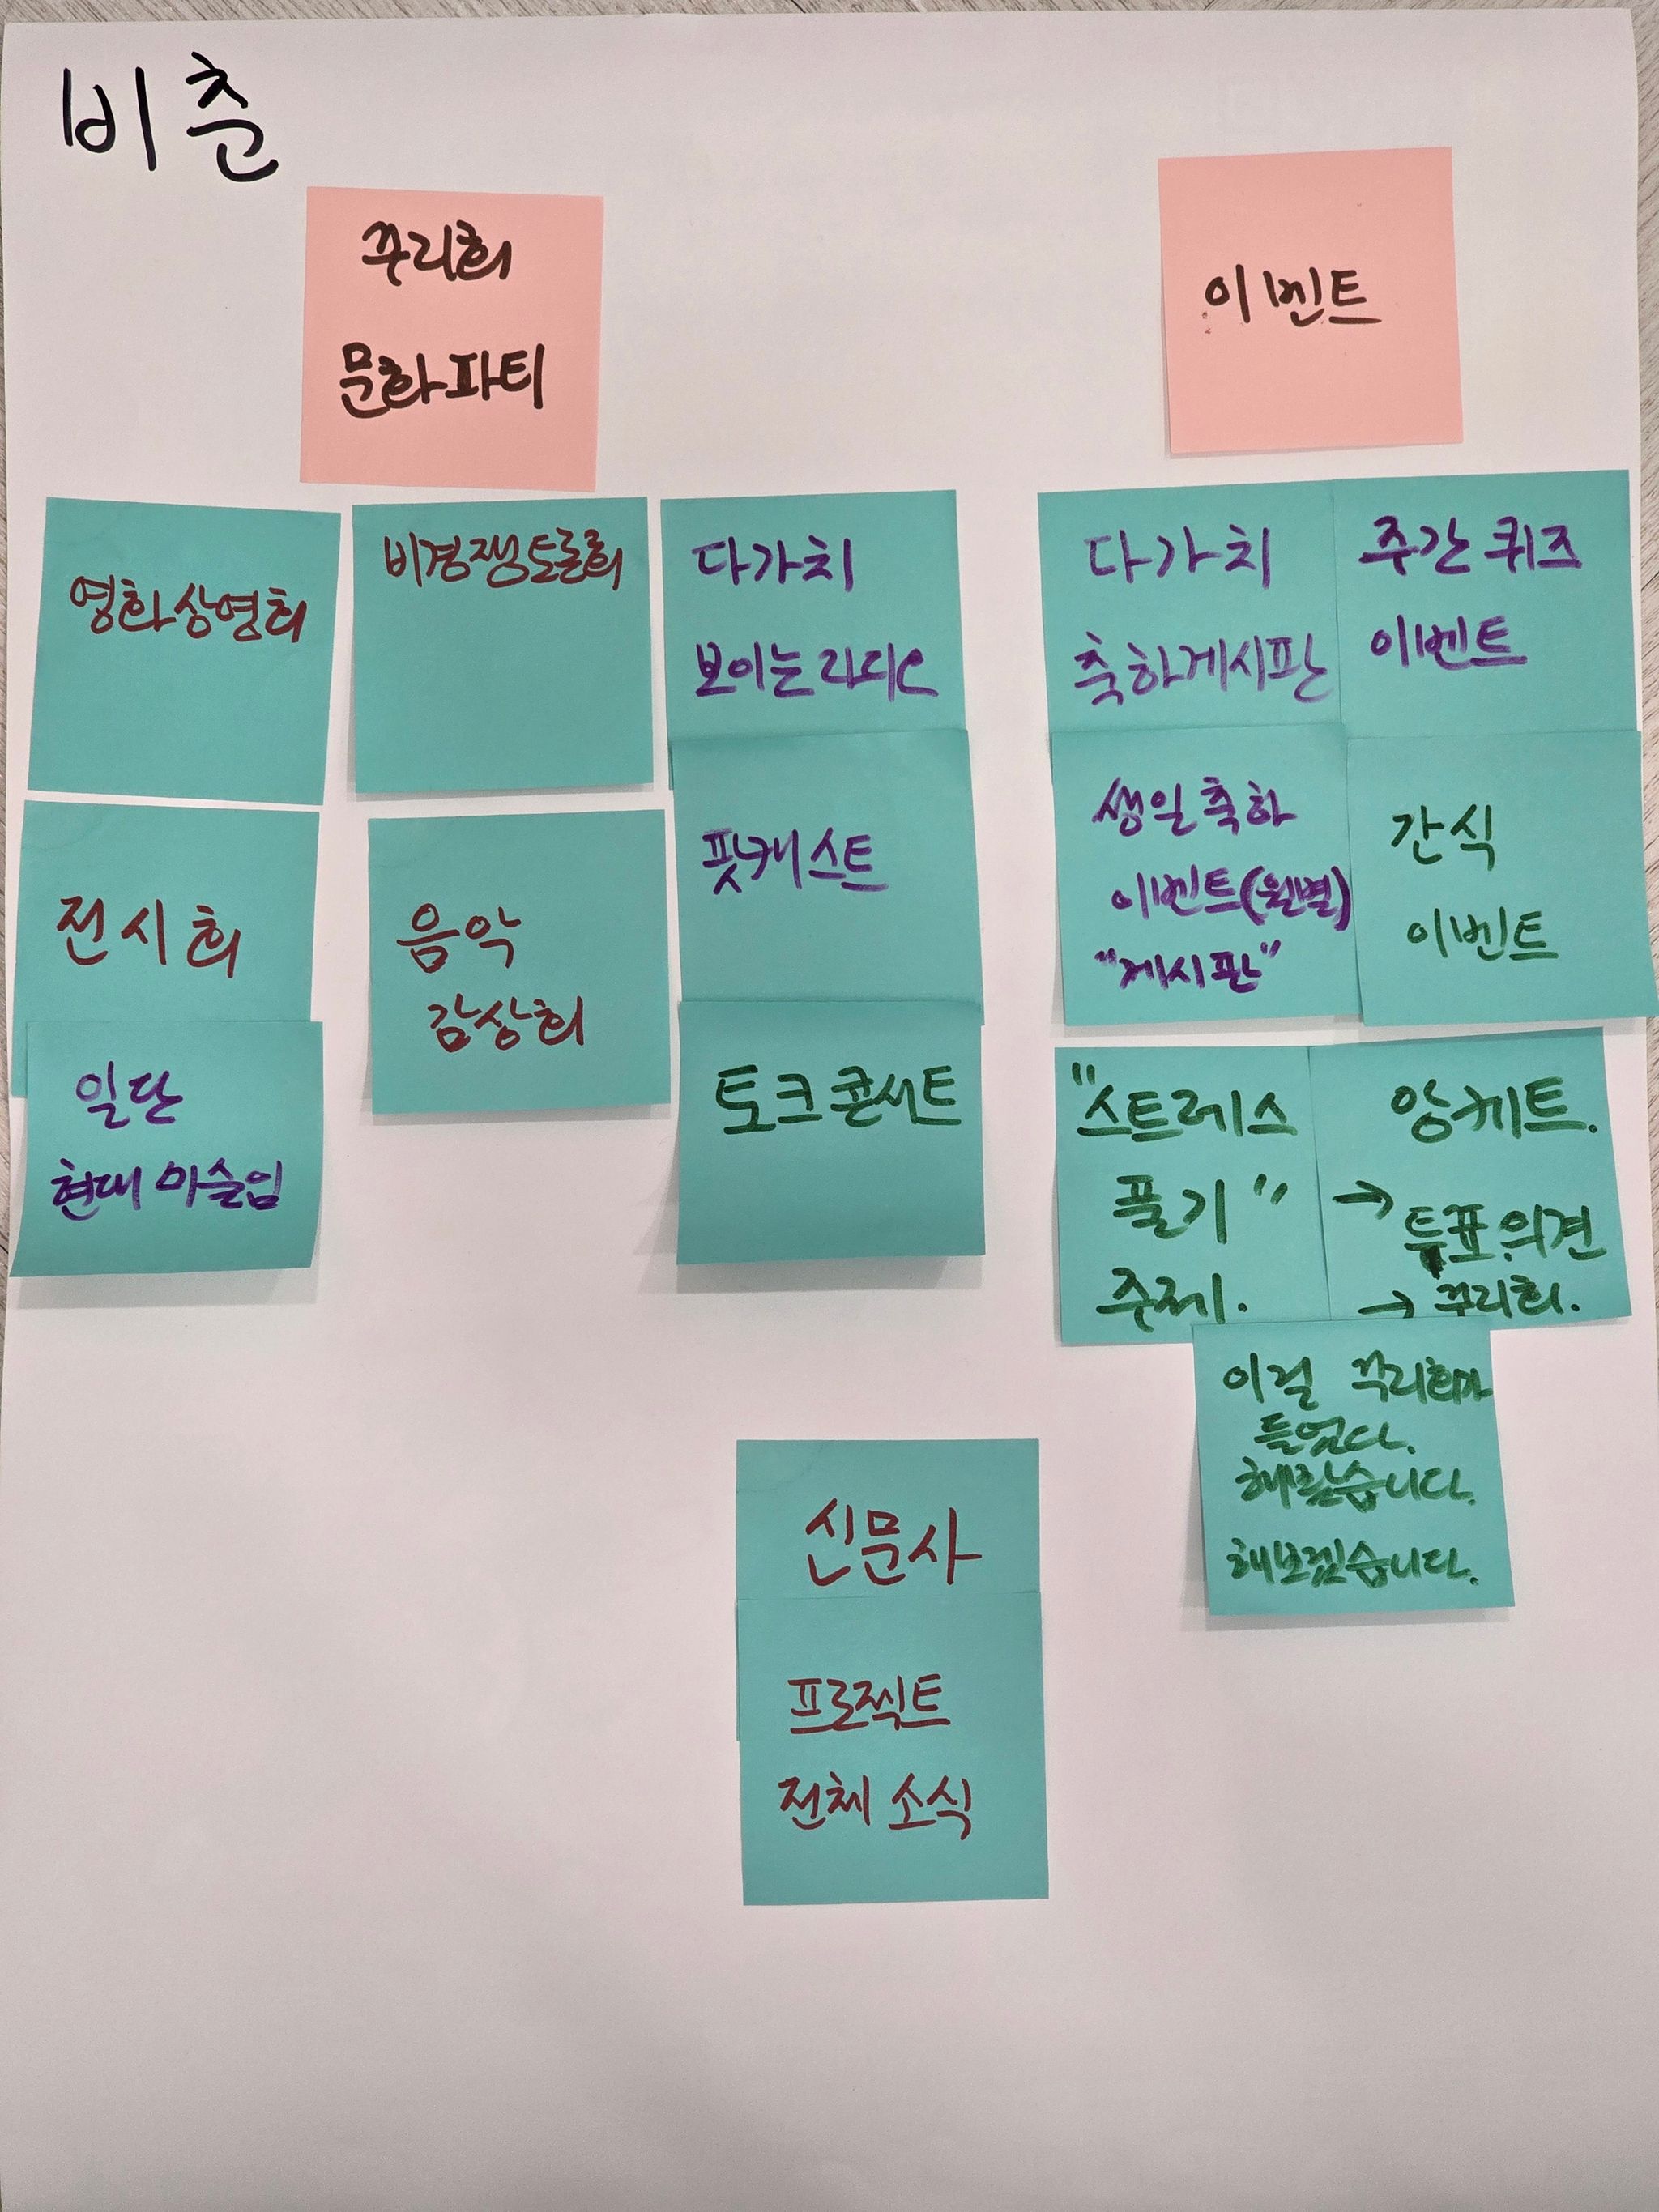 비춘
꾸리회
문화파티
이벤트
영화상영회
비경쟁토론회
다가치
보이는 라디오
다가치
축하게시판
주간 퀴즈
이벤트
전시회
음악
감상회
팟캐스트
생일축하
이벤트(월별)
"게시판"
간식
이벤트
일단
현대 미술임
토크콘서트
"스트레스
풀기"
주제.
앙케트.
→ 투표.의견
→ 꾸리회.
이걸 꾸리회가
들었다.
해줬습니다.
해보겠습니다.
신문사
프로젝트
전체 소식